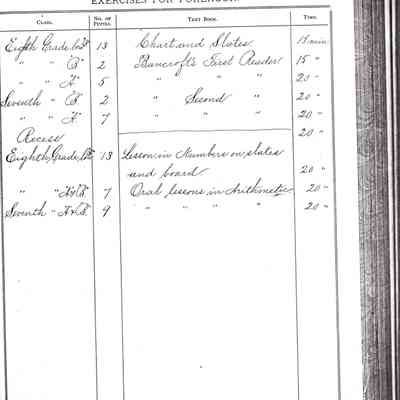 EXERCISES FOR FORENOON.
CLASS. NO. OF PUPILS. TEXT BOOK. TIME.
Eighth Grade, 13 Chart and Slates 15 min
" " "B" 2 Bancroft's First Reader 15 "
" " "A" 5 " " " 20 "
Seventh " "B" 2 " Second " 20 "
" " "A" 7 " " " 20 "
Recess 20 "
Eighth, Grade, 13 Lesson in Numbers on slates
and board 20 "
" "A&B" 7 Oral lessons in Arithmetic 20 "
Seventh "A&B" 9 " " " " 20 "